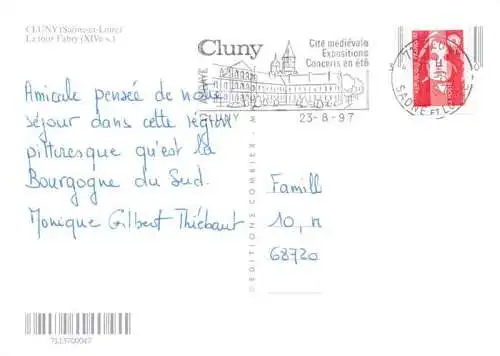 CLUNY (Saône-et-Loire)
La tour Fabry (XIVe s.)
Cluny
Cité médiévale
Expositions
Concerts en été
ABBAYE
CLUNY
23-8-97
SAONE ET LOIRE
Amicale pensée de notre
séjour dans cette région
pittoresque qu'est la
Bourgogne du Sud.
Monique Gilbert Thiébaut
EDITIONS COMBIER
Famill
10, r
68720
7113700047